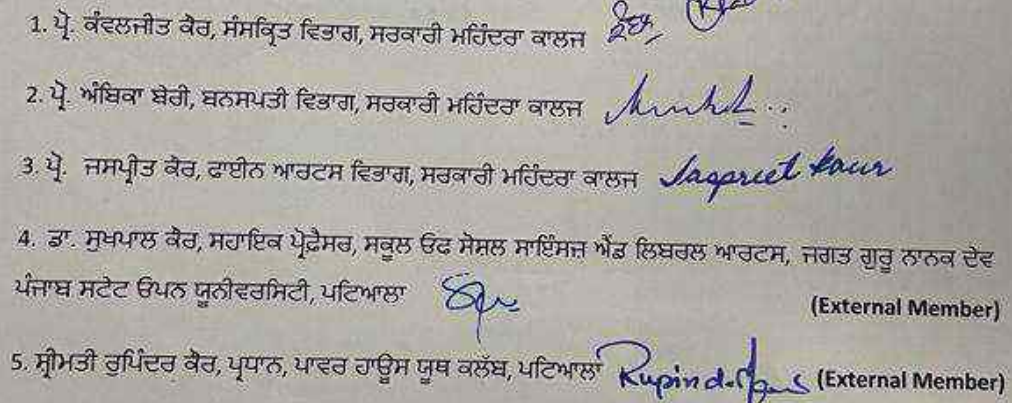 1. ਪ੍ਰੋ. ਕੰਵਲਜੀਤ ਕੌਰ, ਸੰਸਕ੍ਰਿਤ ਵਿਭਾਗ, ਸਰਕਾਰੀ ਮਹਿੰਦਰਾ ਕਾਲਜ
2. ਪ੍ਰੋ. ਅੰਬਿਕਾ ਬੇਰੀ, ਬਨਸਪਤੀ ਵਿਭਾਗ, ਸਰਕਾਰੀ ਮਹਿੰਦਰਾ ਕਾਲਜ
3. ਪ੍ਰੋ. ਜਸਪ੍ਰੀਤ ਕੌਰ, ਫਾਈਨ ਆਰਟਸ ਵਿਭਾਗ, ਸਰਕਾਰੀ ਮਹਿੰਦਰਾ ਕਾਲਜ Jaspreet Kaur
4. ਡਾ. ਸੁਖਪਾਲ ਕੌਰ, ਸਹਾਇਕ ਪ੍ਰੋਫ਼ੈਸਰ, ਸਕੂਲ ਓਫ ਸੋਸ਼ਲ ਸਾਇੰਸਜ਼ ਐਂਡ ਲਿਬਰਲ ਆਰਟਸ, ਜਗਤ ਗੁਰੂ ਨਾਨਕ ਦੇਵ
ਪੰਜਾਬ ਸਟੇਟ ਓਪਨ ਯੂਨੀਵਰਸਿਟੀ, ਪਟਿਆਲਾ (External Member)
5. ਸ੍ਰੀਮਤੀ ਰੁਪਿੰਦਰ ਕੌਰ, ਪ੍ਰਧਾਨ, ਪਾਵਰ ਹਾਊਸ ਯੂਥ ਕਲੱਬ, ਪਟਿਆਲਾ (External Member)